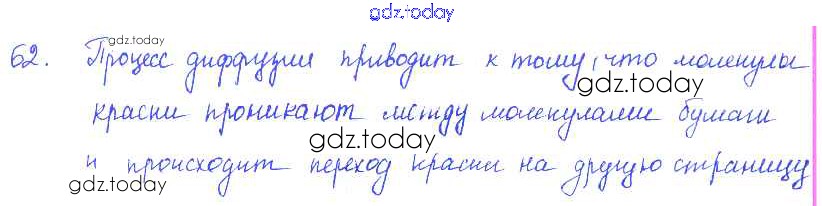 gdz.today
gdz.today
62. Процесс диффузии приводит к тому, что молекулы
gdz.today
краски проникают между молекулами бумаги
gdz.today
и происходит переход краски на другую страницу
gdz.today